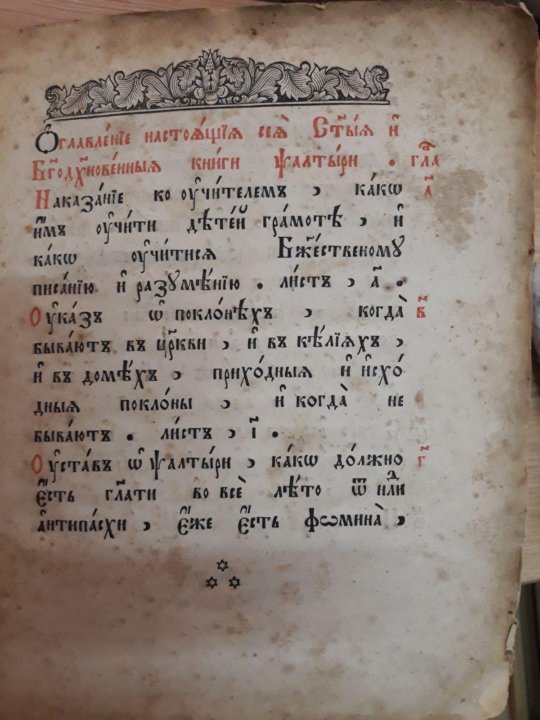 Ѻглавле́нїе настоѧ́щїѧ сеѧ̀ Ст҃ы́ѧ и҆
Бг҃одх҃нове́нныѧ кни́ги ѱалты́ри . гла
Наказа́нїе ко оу҆чи́телемъ , ка́кѡ а҃
и҆̀мъ оу҆чи́ти дѣте́й гра́мотѣ , и҆
ка́кѡ оу҆чи́тисѧ Бж҃е́ственому
писа́нїю и҆ разꙋмѣ́нїю . ли́стъ , а҃ .
Оу҆ка́зъ ѡ҆ покло́нѣхъ , когда̀ в҃
быва́ютъ въ цр҃кви , и҆ въ ке́лїѧхъ ,
и҆ въ домѣ́хъ , прихо́дныѧ и҆ и҆схо́
дныѧ покло́ны , и҆ когда̀ не
быва́ютъ . ли́стъ , і҃ .
Оу҆ста́въ ѡ҆ ѱалты́ри , ка́кѡ до́лжно г҃
є҆́сть гл҃ати во всѐ лѣ́то ѿ нⷣ҇ли
а҆нтипа́схи , є҆́же є҆́сть ѳѡмина̀ ,